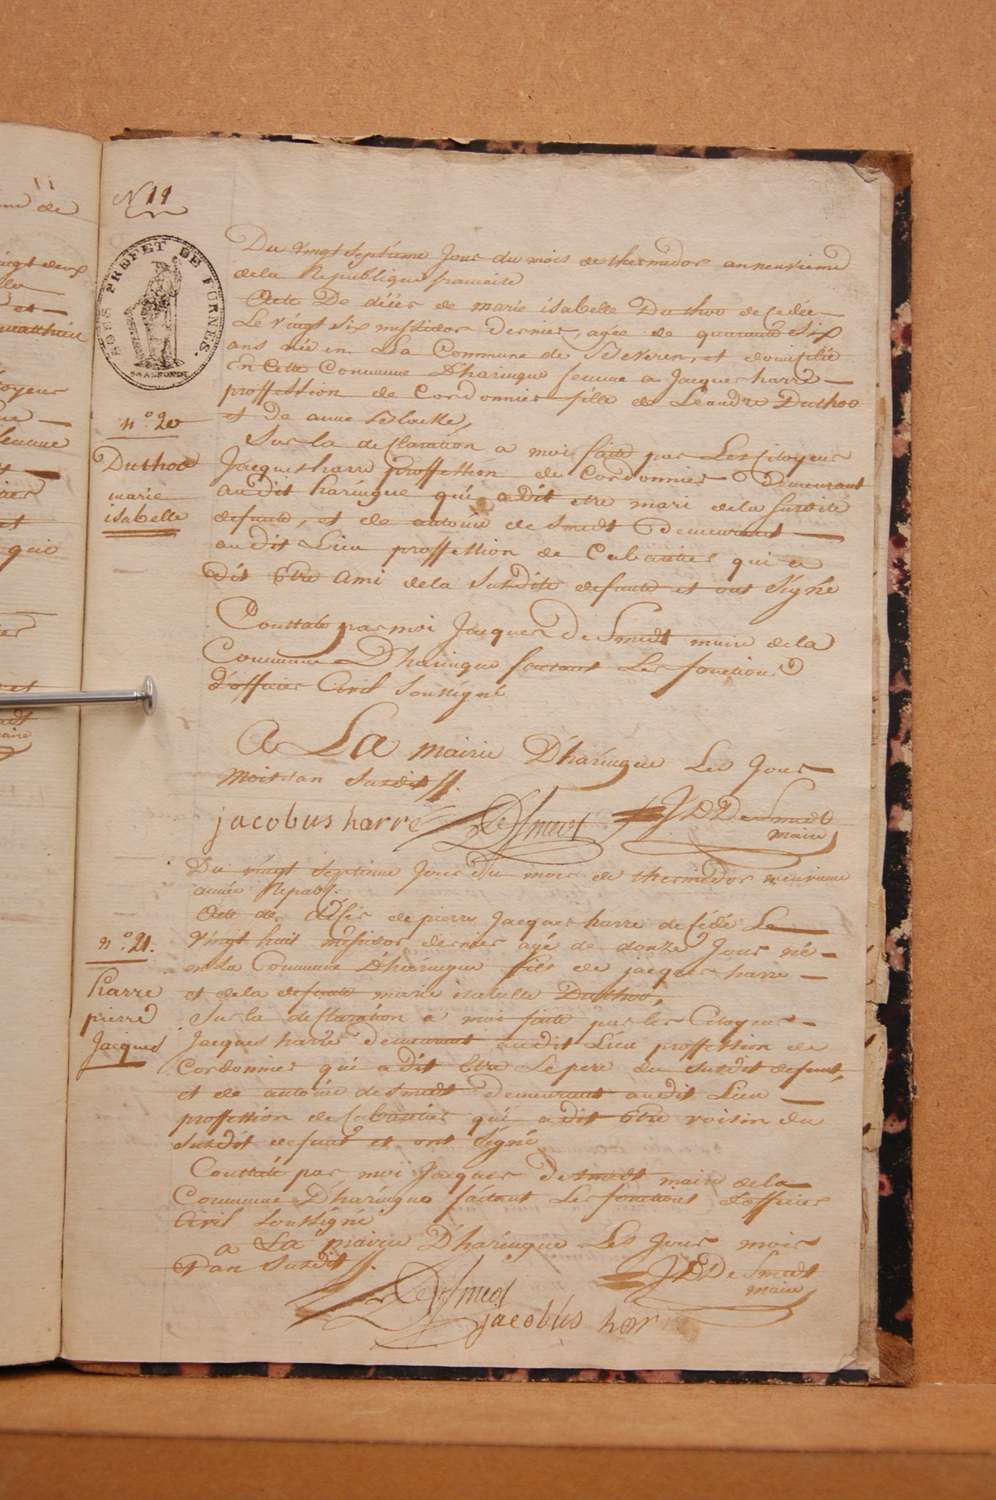 N 11
SOUS PREFET DE FURNES.
Du vingt septieme Jour du mois de thermidor an neuvieme
de la Republique francaise
Acte De décés de marie isabelle Duthoo decedée
Le vingt six messidor dernier, agée de quarante six
ans née en La Commune de Beveren, et domicilié
en Cette Commune D'haringue femme a Jacques harre
proffession de Cordonnier fille de Leandre Duthoo
et De anne
n.º 20
Duthoo
marie
isabelle
Sur la declaration a moi faite par Les Citoyens
Jacques harre proffession de Cordonnier Demeurant
au dit haringue qui a dit etre mari de la susdite
defunte, et de antoine de Smedt Demeurant
au dit Lieu proffession de Cabartier qui a
dit être ami de la susdite defunte et ont Signé
Constaté par moi Jacques De Smedt maire de la
Commune D'haringue faisant Les fonctions
d'officier Civil soussigné
A La mairie D'haringue Les Jour
mois an susdit
jacobus harre DeSmedt J D DeSmedt
maire
Du vingt septieme Jour du mois de thermidor neuvieme
année Republ.
Acte de décés de pierre Jacques harre decédé Le
vingt huit messidor dernier agé de donze Jours né
en la Commune D'haringue fils de jacques harre
et de la defunte marie isabelle Duthoo,
n.º 21.
harre
pierre
Jacques
Sur la declaration a moi faite par les Citoyens
Jacques harre demeurant au dit Lieu proffession de
Cordonnier qui a dit être Le pere du susdit defunt,
et de antoine desmedt demeurant au dit Lieu
proffession de Cabartier qui a dit être voisin du
susdit defunt et ont Signé
Constaté par moi Jacques Desmedt maire de la
Commune D'haringue faisant Les fonctions d'officier
Civil soussigné
a La mairie D'haringue Les Jour mois
et an susdit
DeSmedt J D De Smedt
maire
jacobus har